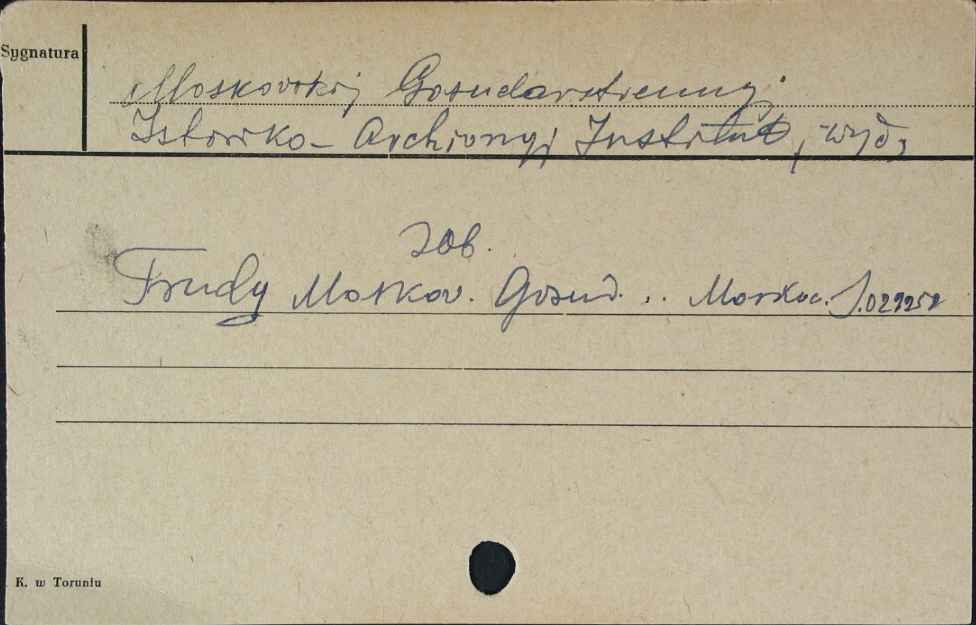 Sygnatura
Moskovskij Gosudarstvennyj
Istoriko-Archivnyj Institut, wyd.
zob.
Trudy Moskov. Gosud. .. Moskva.
K. w Toruniu